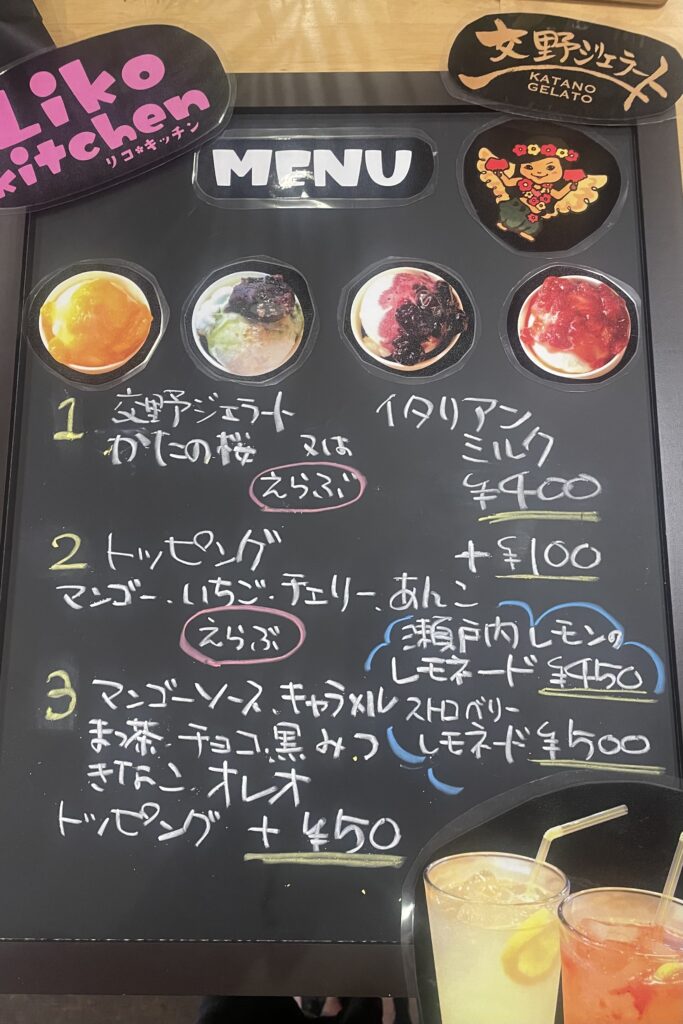 Liko
kitchen
リコ*キッチン
交野ジェラート
KATANO
GELATO
MENU
1 交野ジェラート イタリアン
かたの桜 又は ミルク
えらぶ ¥400
2 トッピング +¥100
マンゴー、いちご・チェリー、あんこ
えらぶ
瀬戸内レモンの
レモネード ¥450
3 マンゴーソース、キャラメル
ストロベリー
まっ茶・チョコ、黒みつ
レモネード ¥500
きなこ、オレオ
トッピング +¥50